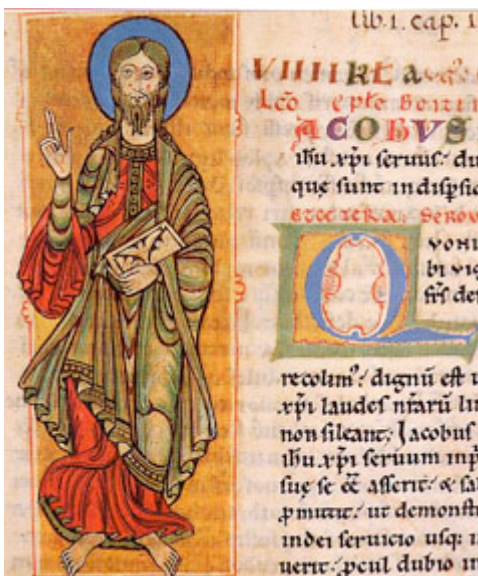 lib. 1. cap. 1
VIIII KL A
Lc̄o epłe
IACOBVS
ihu xp̄i seruus: du
quę sunt in dispsio
QVONI
bi vig
fr̄s de
recolim⁹: dignū est u
xp̄i laudes nr̄arū lin
non sileant; Jacobus
ihu xp̄i seruum in p̄
suę se ēē asserit: & sal
ꝓmittit: ut demonst
in dei seruicio usq: i
uerit: ꝓcul dubio in